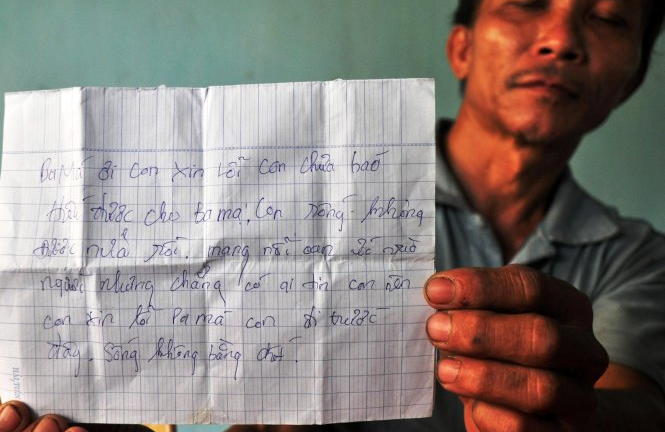 Ba má ơi con xin lỗi con chưa báo
hiếu được cho ba má, con sống không
được nữa rồi. mang nỗi oan ức vào
người nhưng chẳng có ai tin con nên
con xin lỗi Pa má con đi trước
đây. Sống không bằng chết.